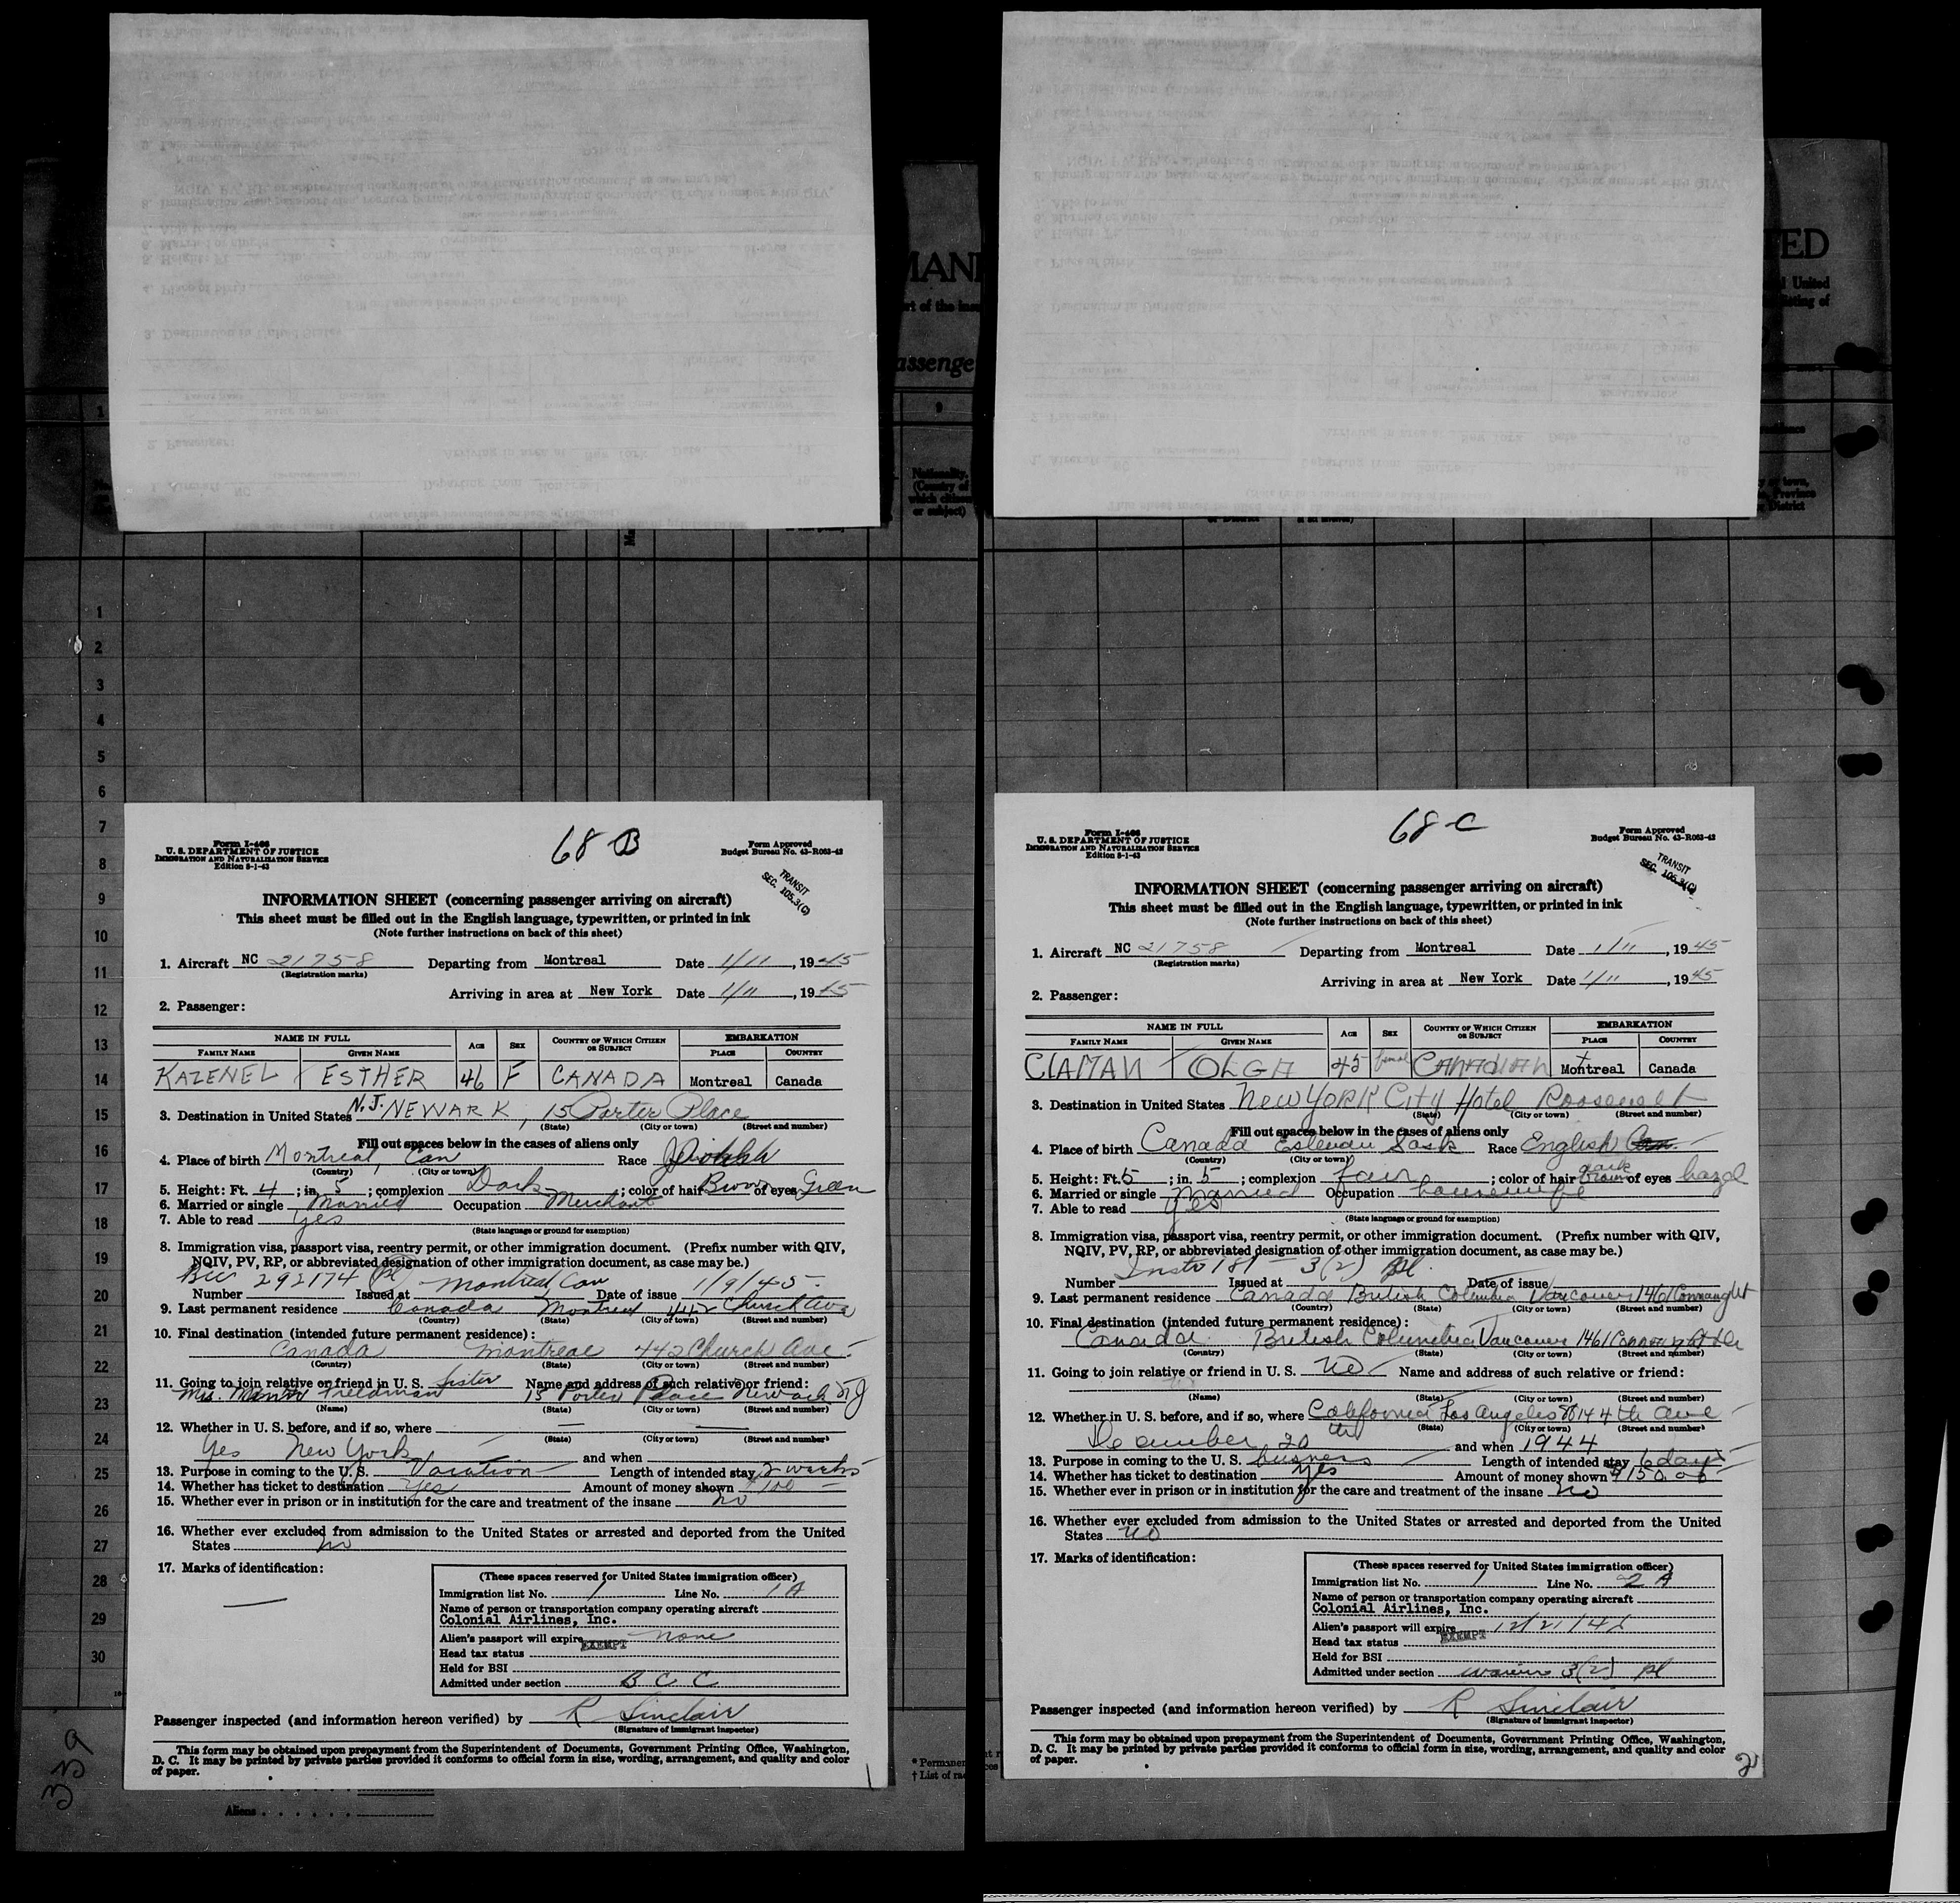 68 B
Form I-466
U. S. DEPARTMENT OF JUSTICE
IMMIGRATION AND NATURALIZATION SERVICE
Edition 5-1-43
Form Approved
Budget Bureau No. 43-R063-42
TRANSIT
SEC. 105.3(C)
INFORMATION SHEET (concerning passenger arriving on aircraft)
This sheet must be filled out in the English language, typewritten, or printed in ink
(Note further instructions on back of this sheet)
1. Aircraft NC 21758 Departing from Montreal Date 1/11, 1945
(Registration marks)
Arriving in area at New York Date 1/11, 1945
2. Passenger:
NAME IN FULL AGE SEX COUNTRY OF WHICH CITIZEN OR SUBJECT EMBARKATION
FAMILY NAME GIVEN NAME PLACE COUNTRY
KAZENEL ESTHER 46 F CANADA Montreal Canada
3. Destination in United States N.J. NEWARK, 15 Porter Place
(State) (City or town) (Street and number)
Fill out spaces below in the cases of aliens only
4. Place of birth Montreal, Can Race
(Country) (City or town)
5. Height: Ft. 4; in. 5; complexion Dark; color of hair Brown of eyes Green
6. Married or single Married Occupation Merchant
7. Able to read Yes
(State language or ground for exemption)
8. Immigration visa, passport visa, reentry permit, or other immigration document. (Prefix number with QIV,
NQIV, PV, RP, or abbreviated designation of other immigration document, as case may be.)
292174 Montreal Can 1/9/45
Number Issued at Date of issue
9. Last permanent residence Canada Montreal 442 Church Ave
(Country) (State) (City or town) (Street and number)
10. Final destination (intended future permanent residence):
Canada Montreal 442 Church Ave.
(Country) (State) (City or town) (Street and number)
11. Going to join relative or friend in U. S. Sister Name and address of such relative or friend:
Mrs. Freedman 15 Porter Place Newark NJ
(Name) (State) (City or town) (Street and number)
12. Whether in U. S. before, and if so, where
(State) (City or town) (Street and number)
Yes New York and when
13. Purpose in coming to the U. S. Vacation Length of intended stay 2 weeks
14. Whether has ticket to destination Yes Amount of money shown $100
15. Whether ever in prison or in institution for the care and treatment of the insane no
16. Whether ever excluded from admission to the United States or arrested and deported from the United
States no
17. Marks of identification:
(These spaces reserved for United States immigration officer)
Immigration list No. 1 Line No. 1A
Name of person or transportation company operating aircraft
Colonial Airlines, Inc.
Alien's passport will expire none
EXEMPT
Head tax status
Held for BSI
Admitted under section B C C
Passenger inspected (and information hereon verified) by R Sinclair
(Signature of immigrant inspector)
This form may be obtained upon prepayment from the Superintendent of Documents, Government Printing Office, Washington,
D. C. It may be printed by private parties provided it conforms to official form in size, wording, arrangement, and quality and color
of paper.
1
339
Aliens
68-C
Form I-466
U. S. DEPARTMENT OF JUSTICE
IMMIGRATION AND NATURALIZATION SERVICE
Edition 5-1-43
Form Approved
Budget Bureau No. 43-R063-42
TRANSIT
SEC. 105.3(C)
INFORMATION SHEET (concerning passenger arriving on aircraft)
This sheet must be filled out in the English language, typewritten, or printed in ink
(Note further instructions on back of this sheet)
1. Aircraft NC 21758 Departing from Montreal Date 1/11, 1945
(Registration marks)
Arriving in area at New York Date 1/11, 1945
2. Passenger:
NAME IN FULL AGE SEX COUNTRY OF WHICH CITIZEN OR SUBJECT EMBARKATION
FAMILY NAME GIVEN NAME PLACE COUNTRY
CLAMAN OLGA 45 female CANADIAN Montreal Canada
3. Destination in United States New YORK City Hotel Roosevelt
(State) (City or town) (Street and number)
Fill out spaces below in the cases of aliens only
4. Place of birth Canada Estevan Sask Race English
(Country) (City or town)
5. Height: Ft. 5; in. 5; complexion fair; color of hair dark brown of eyes hazel
6. Married or single Married Occupation housewife
7. Able to read yes
(State language or ground for exemption)
8. Immigration visa, passport visa, reentry permit, or other immigration document. (Prefix number with QIV,
NQIV, PV, RP, or abbreviated designation of other immigration document, as case may be.)
Instr 181 - 3(2) pl.
Number Issued at Date of issue
9. Last permanent residence Canada British Columbia Vancouver 1461 Connaught
(Country) (State) (City or town) (Street and number)
10. Final destination (intended future permanent residence):
Canada British Columbia Vancouver 1461 Connaught
(Country) (State) (City or town) (Street and number)
11. Going to join relative or friend in U. S. no Name and address of such relative or friend:
(Name) (State) (City or town) (Street and number)
12. Whether in U. S. before, and if so, where California Los Angeles 4th ave
(State) (City or town) (Street and number)
December 20th and when 1944
13. Purpose in coming to the U. S. business Length of intended stay 6 days
14. Whether has ticket to destination yes Amount of money shown $150.00
15. Whether ever in prison or in institution for the care and treatment of the insane no
16. Whether ever excluded from admission to the United States or arrested and deported from the United
States no
17. Marks of identification:
(These spaces reserved for United States immigration officer)
Immigration list No. 1 Line No. 2 A
Name of person or transportation company operating aircraft
Colonial Airlines, Inc.
Alien's passport will expire 12/21/46
EXEMPT
Head tax status
Held for BSI
Admitted under section waiver 3(2) pl
Passenger inspected (and information hereon verified) by R Sinclair
(Signature of immigrant inspector)
This form may be obtained upon prepayment from the Superintendent of Documents, Government Printing Office, Washington,
D. C. It may be printed by private parties provided it conforms to official form in size, wording, arrangement, and quality and color
of paper.
2